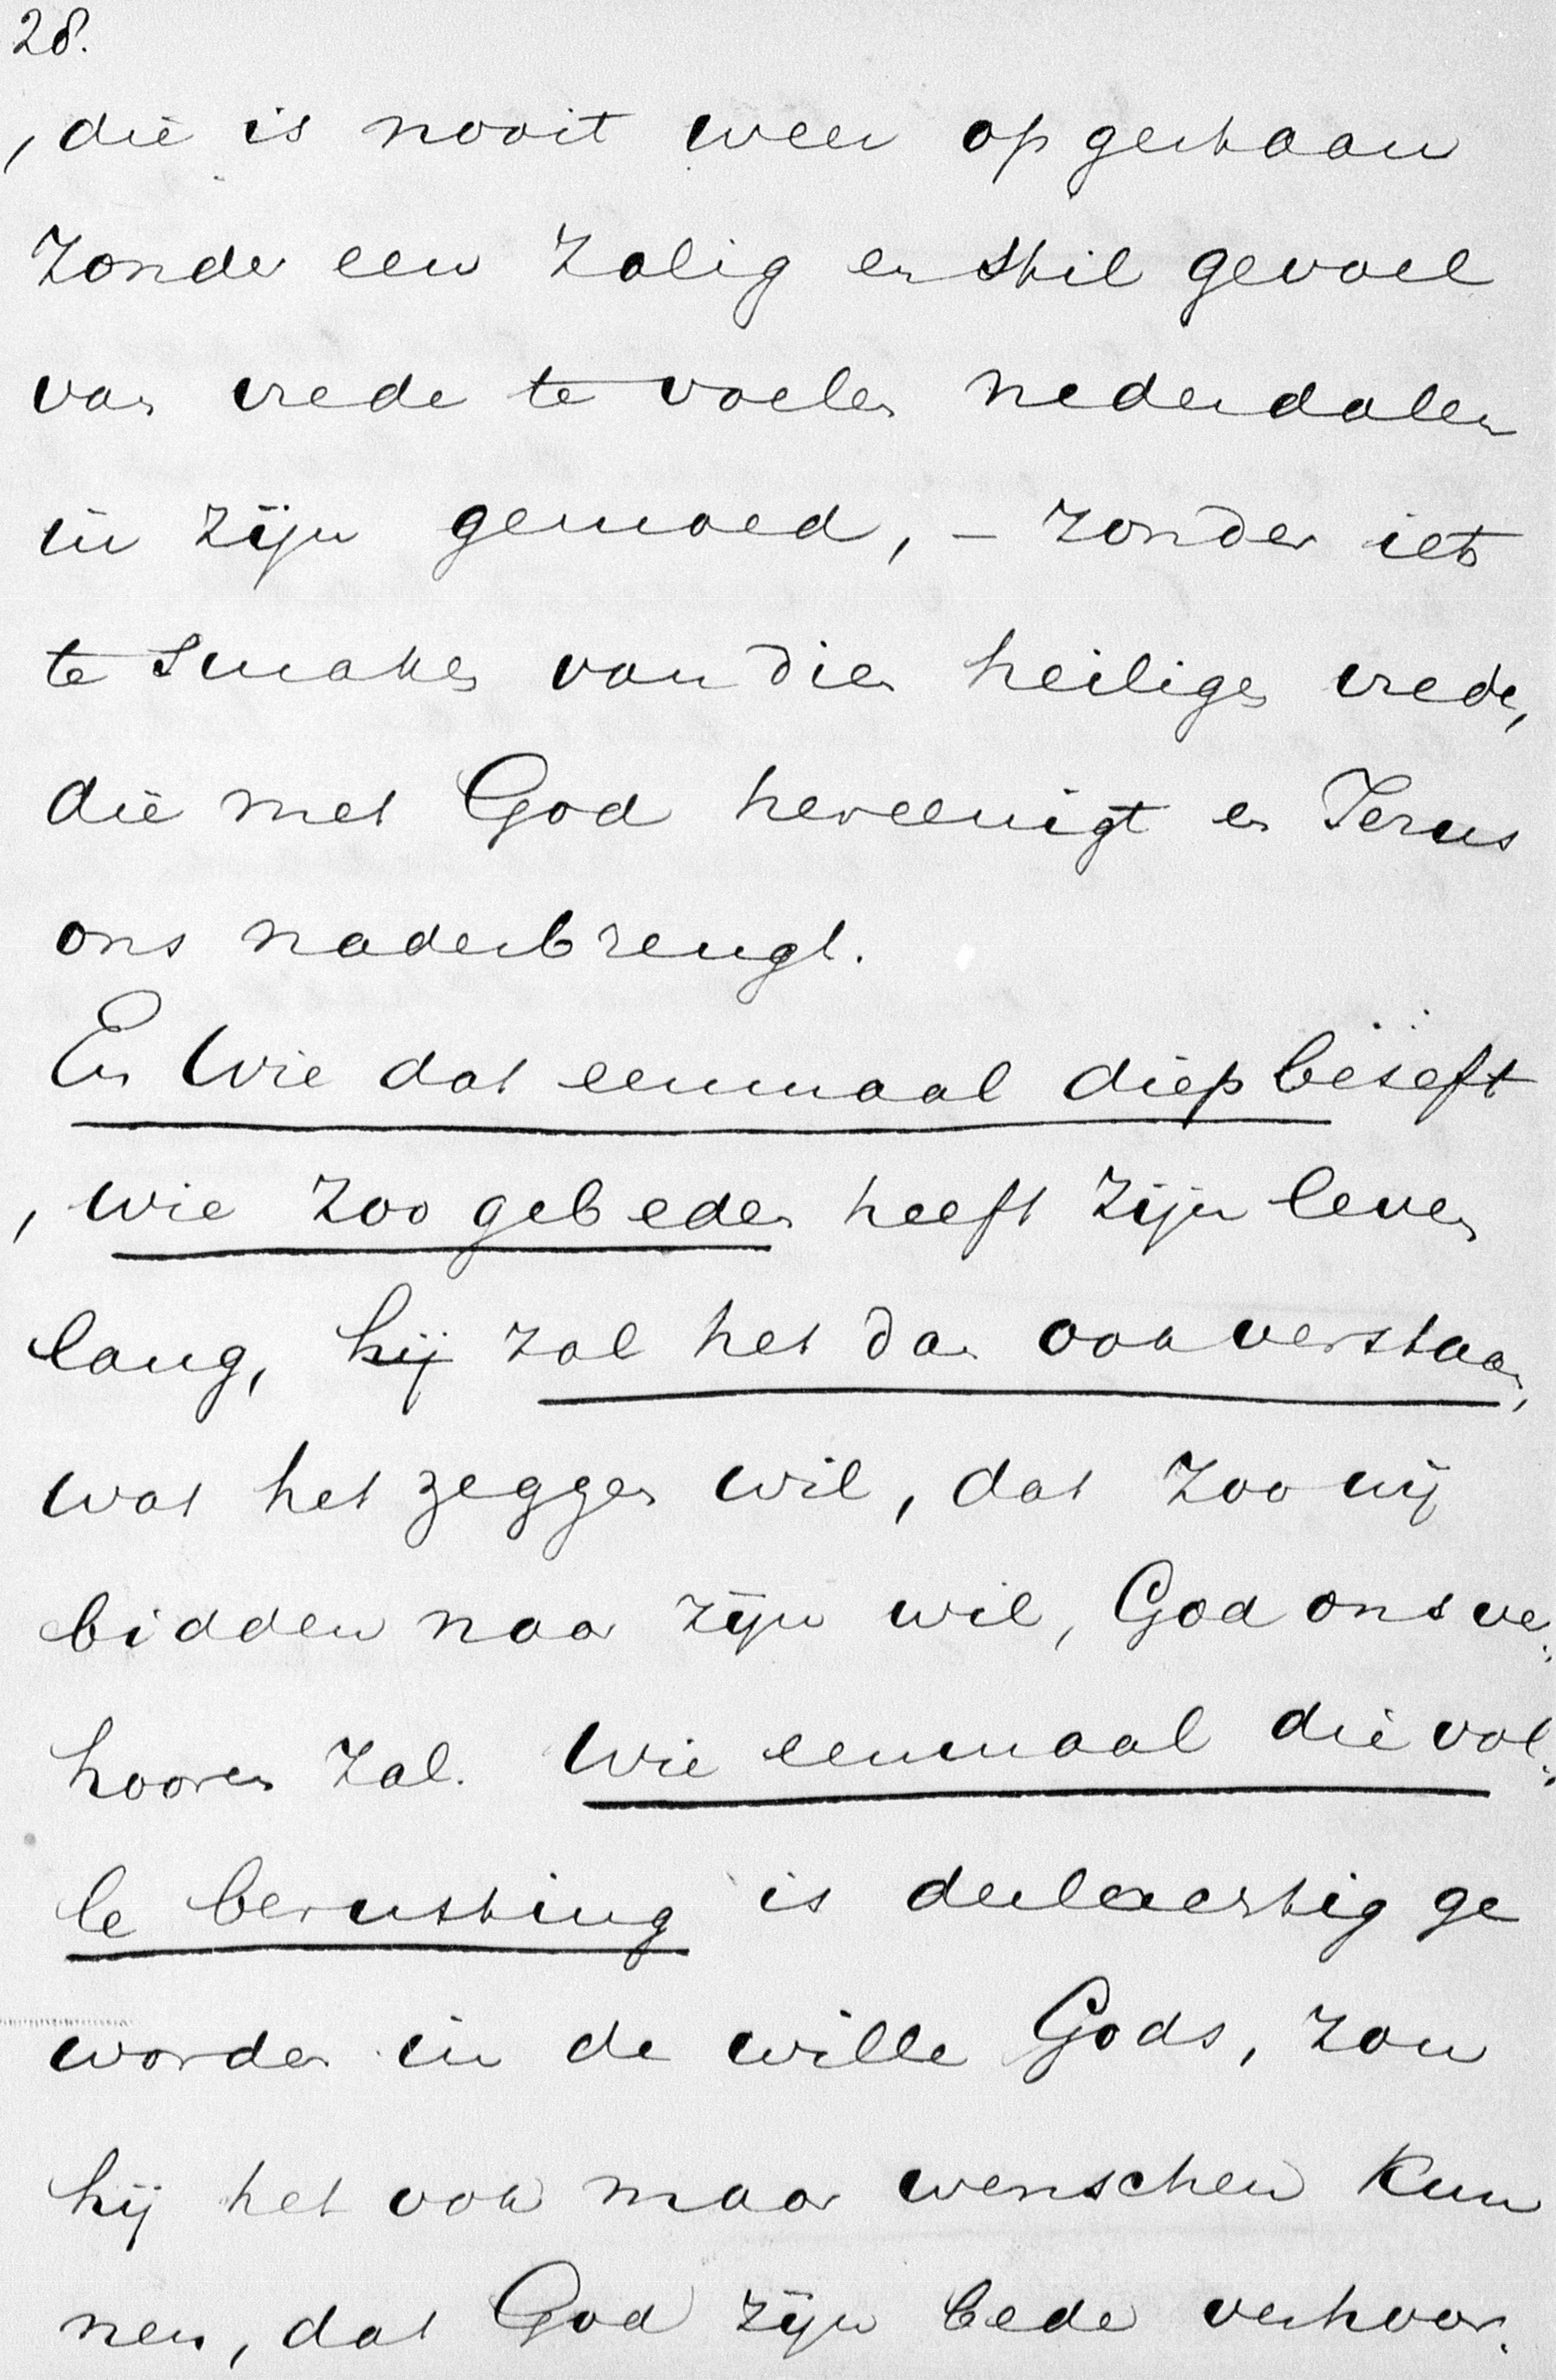 28.
, die is nooit weer opgestaan
zonder een zalig en stil gevoel
van vrede te voelen nederdalen
in zijn gemoed, – zonder iets
te smaken van dien heiligen vrede,
die met God hereenigt en Jezus
ons naderbrengt.
En wie dat eenmaal diep beseft
, wie zoo gebeden heeft zijn leven
lang, hij zal het dan ook verstaan,
wat het zeggen wil, dat zoo wij
bidden naar zijn wil, God ons ver:
hooren zal. Wie eenmaal die vol:
le berusting is deelachtig ge
worden in de wille Gods, zou
hij het ook maar wenschen kun
nen, dat God zijn bede verhoor: